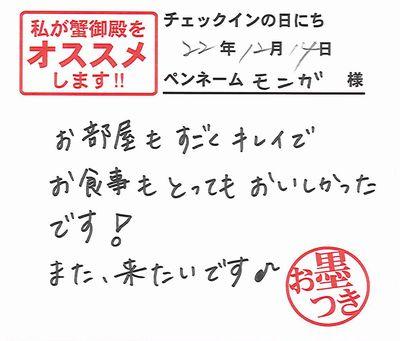 私が蟹御殿を
オススメ
します!!
チェックインの日にち
22年12月14日
ペンネーム モンガ 様
お部屋もすごくキレイで
お食事もとってもおいしかった
です!
また、来たいです♪
お墨つき